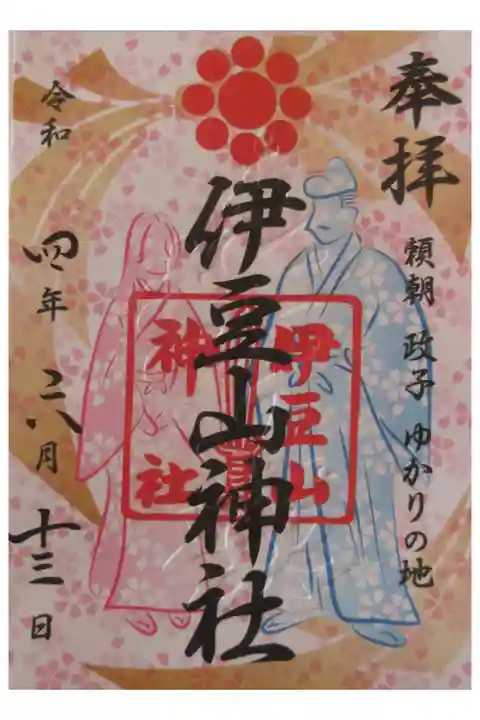 奉拝
頼朝 政子 ゆかりの地
伊豆山神社
伊豆山
神社
令和
四年 六月 十三日